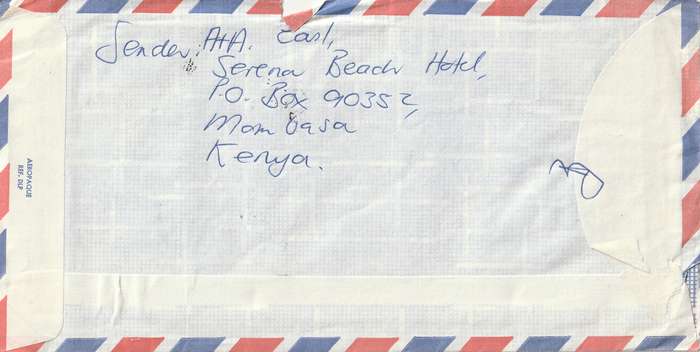 Sender: A+A. East,
Serena Beach Hotel,
P.O. Box 90352,
Mombasa
Kenya.
AEROPAQUE
REF. DLP